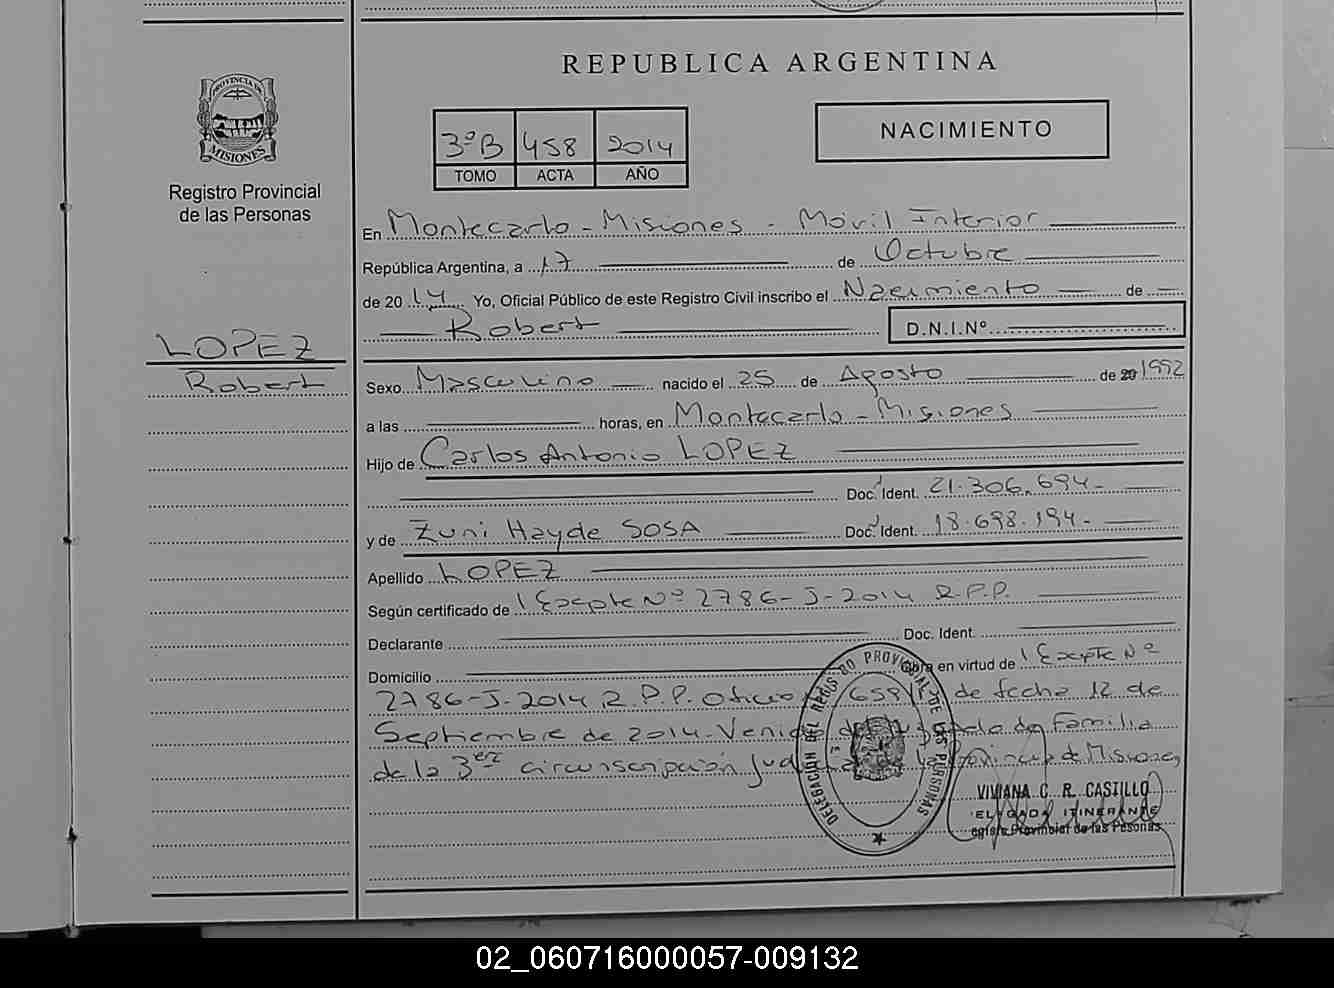 REPUBLICA ARGENTINA
PROVINCIA DE
MISIONES
Registro Provincial
de las Personas
3ºB 458 2014
TOMO ACTA AÑO
NACIMIENTO
En Montecarlo - Misiones - Móvil Interior
República Argentina, a 17 de Octubre
de 20 14 Yo, Oficial Público de este Registro Civil inscribo el Nacimiento de
Robert D.N.I.Nº
LOPEZ
Robert
Sexo Masculino nacido el 25 de Agosto de 20 1992
a las horas, en Montecarlo - Misiones
Hijo de Carlos Antonio LOPEZ
Doc. Ident. 21.306.694-
y de Zuni Hayde SOSA Doc. Ident. 18.698.194-
Apellido LOPEZ
Según certificado de 1 Excpte Nº 2786-J-2014 R.P.P.
Declarante Doc. Ident.
Domicilio Obra en virtud de 1 Excpte Nº
2786-J-2014 R.P.P. Oficio 659 de fecha 12 de
Septiembre de 2014. Venido del Juzgado de Familia
de la 3era circunscripción Judicial de la Provincia de Misiones
DELEGACIÓN DEL REGISTRO PROVINCIAL DE LAS PERSONAS
VIVIANA C. R. CASTILLO
ELEGADA ITINERANTE
egistro Provincial de las Pesonas
02_060716000057-009132